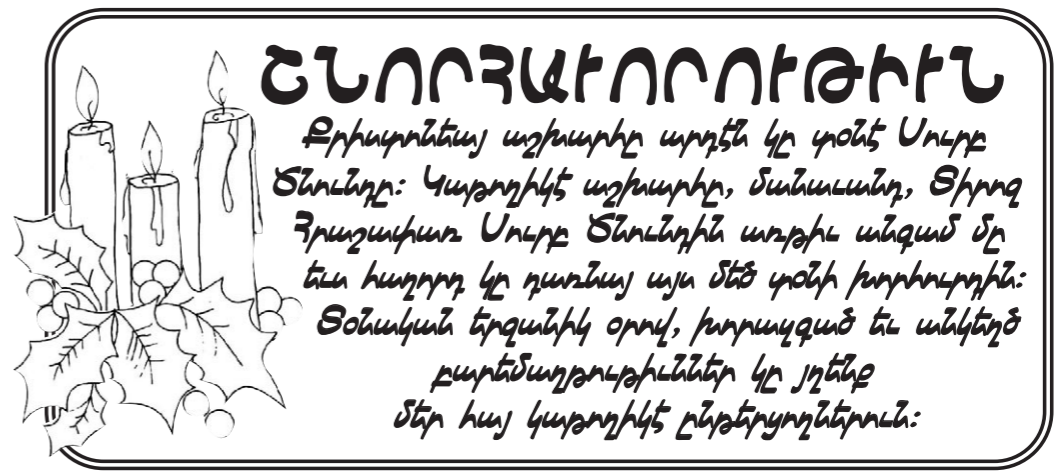 ՇՆՈՐՀԱՒՈՐՈՒԹԻՒՆ
Քրիստոնեայ աշխարհը արդէն կը տօնէ Սուրբ
Ծնունդը: Կաթողիկէ աշխարհը, մանաւանդ, Տիրոջ
Հրաշափառ Սուրբ Ծնունդին առթիւ անգամ մը
եւս հաղորդ կը դառնայ այս մեծ տօնի խորհուրդին:
Տօնական երջանիկ օրով, խորազգած եւ անկեղծ
բարեմաղթութիւններ կը յղենք
մեր հայ կաթողիկէ ընթերցողներուն: